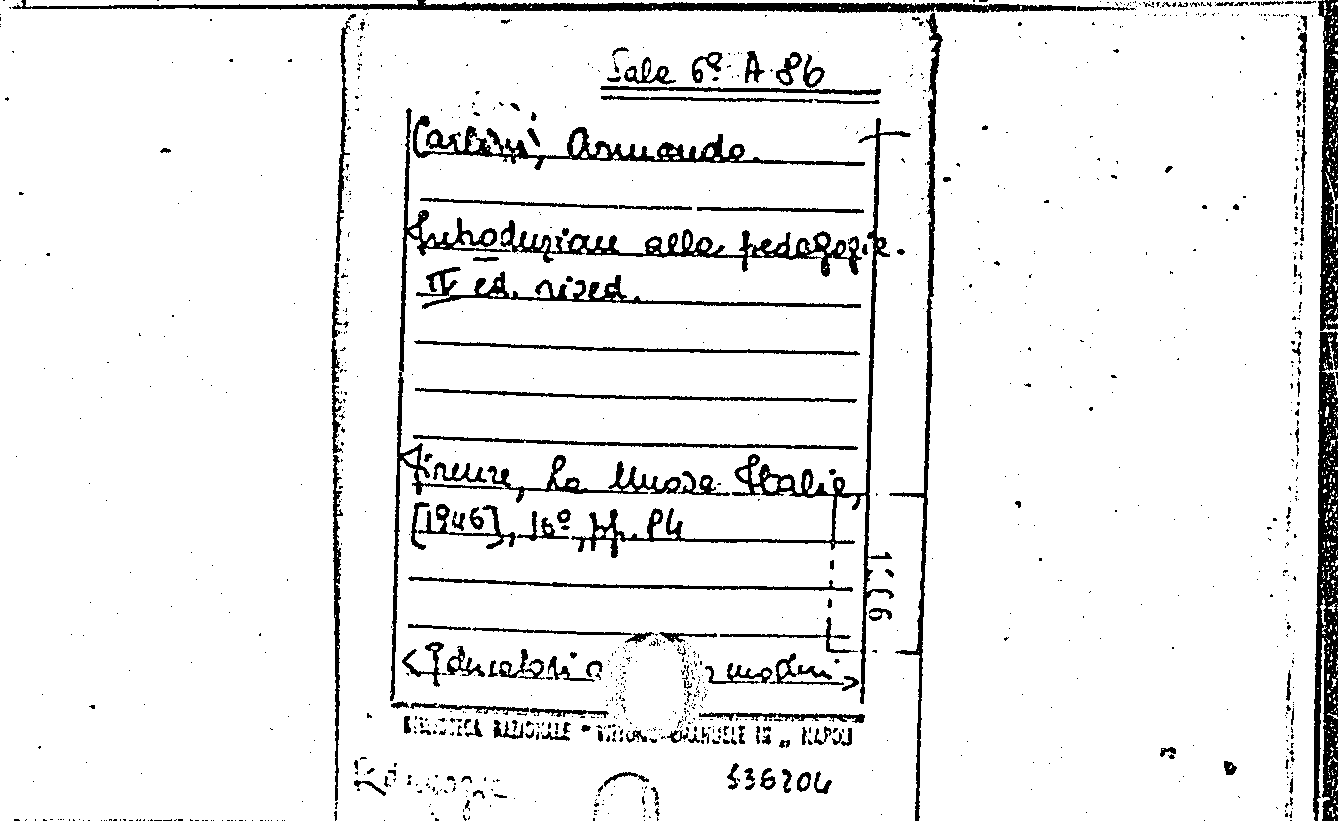 Sala 6ª A 86
Carlini, Armando.
Introduzione alla pedagogia.
II ed. rived.
Firenze, La Nuova Italia,
[1946], 16º, pp. 84
<Educatori a moderni>
BIBLIOTECA NAZIONALE "VITTORIO EMANUELE III" NAPOLI
536204